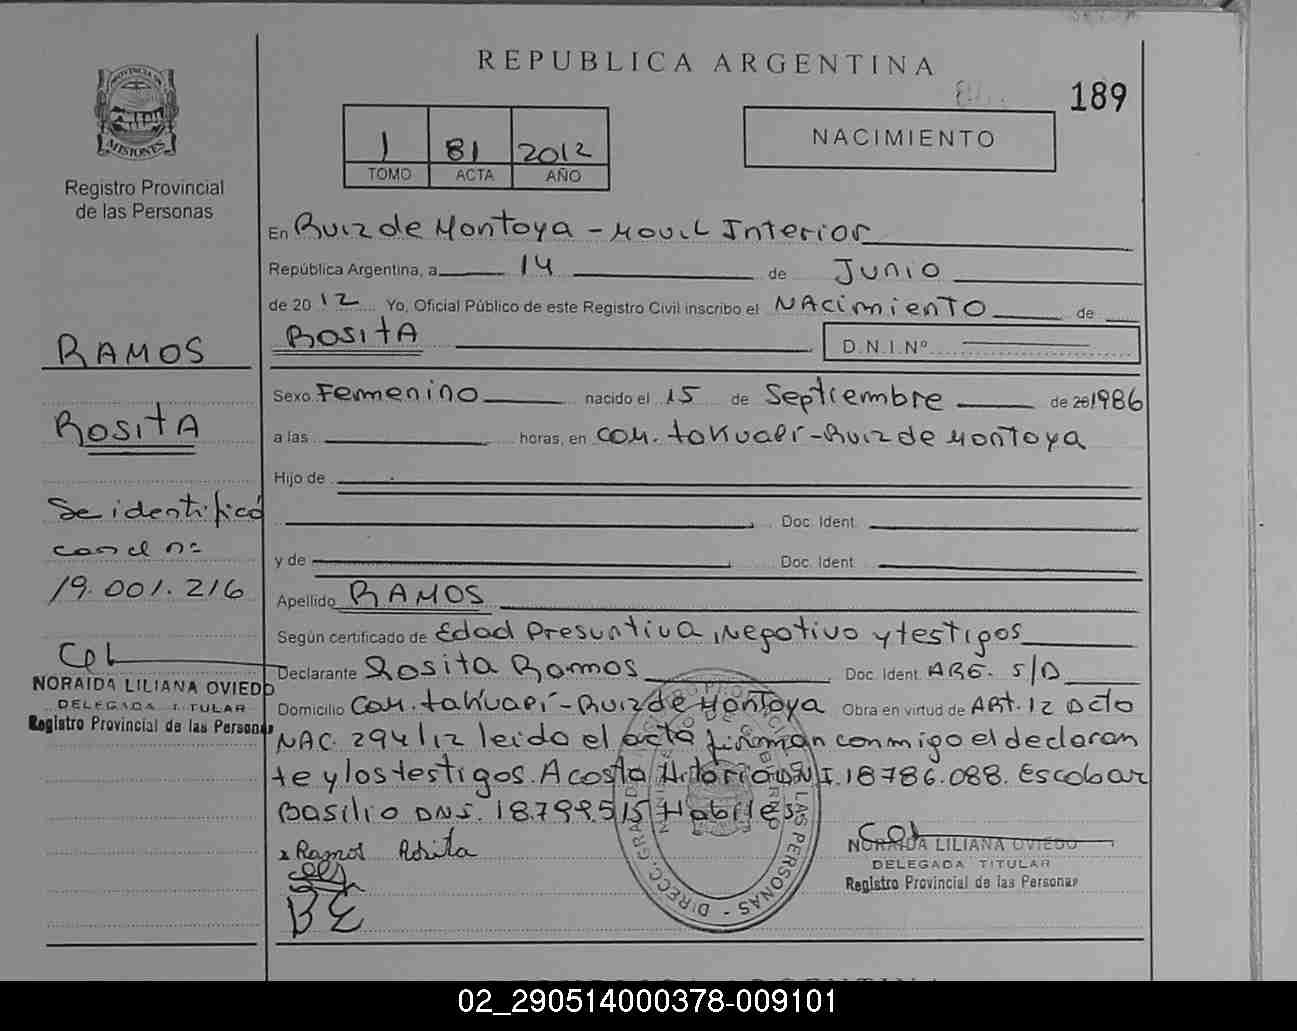 REPUBLICA ARGENTINA
189
PROVINCIA DE
MISIONES
Registro Provincial
de las Personas
1 81 2012
TOMO ACTA AÑO
NACIMIENTO
En Ruiz de Montoya - Movil Interior
República Argentina, a 14 de Junio
de 2012 Yo, Oficial Público de este Registro Civil inscribo el NACimienTO de
ROSITA
D.N.I.Nº
RAMOS
ROSITA
Se identificó
con el nº
19.001.216
NORAIDA LILIANA OVIEDO
DELEGADA TITULAR
Registro Provincial de las Personas
Sexo Femenino nacido el 15 de Septiembre de 20 1986
a las horas, en com. takuapí - Ruiz de Montoya
Hijo de
Doc. Ident.
y de Doc. Ident.
Apellido RAMOS
Según certificado de Edad Presuntiva, Negativo y testigos
Declarante Rosita Ramos Doc. Ident. ARG. S/D
Domicilio Com. takuapí - Ruiz de Montoya Obra en virtud de ARt. 12 Dcto
NAC. 294/12 leido el acta firman conmigo el declaran
te y los testigos. Acosta Hilario DNI. 18786.088. Escobar
Basilio DNI. 18.799.515 Habiles
Ramos Rosita
BE
DIRECC. GRAL. DEL REGISTRO PROVINCIAL DE LAS PERSONAS
MINISTERIO DE GOBIERNO
NORAIDA LILIANA OVIEDO
DELEGADA TITULAR
Registro Provincial de las Personas
02_290514000378-009101